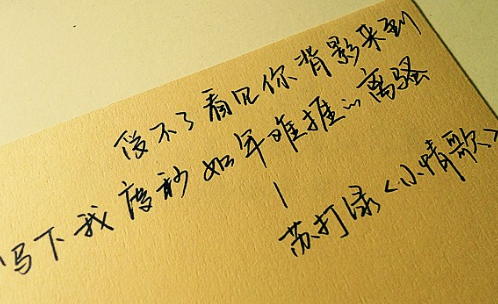 受不了看见你背影来到
写下我度秒如年难捱的离骚
—
苏打绿《小情歌》